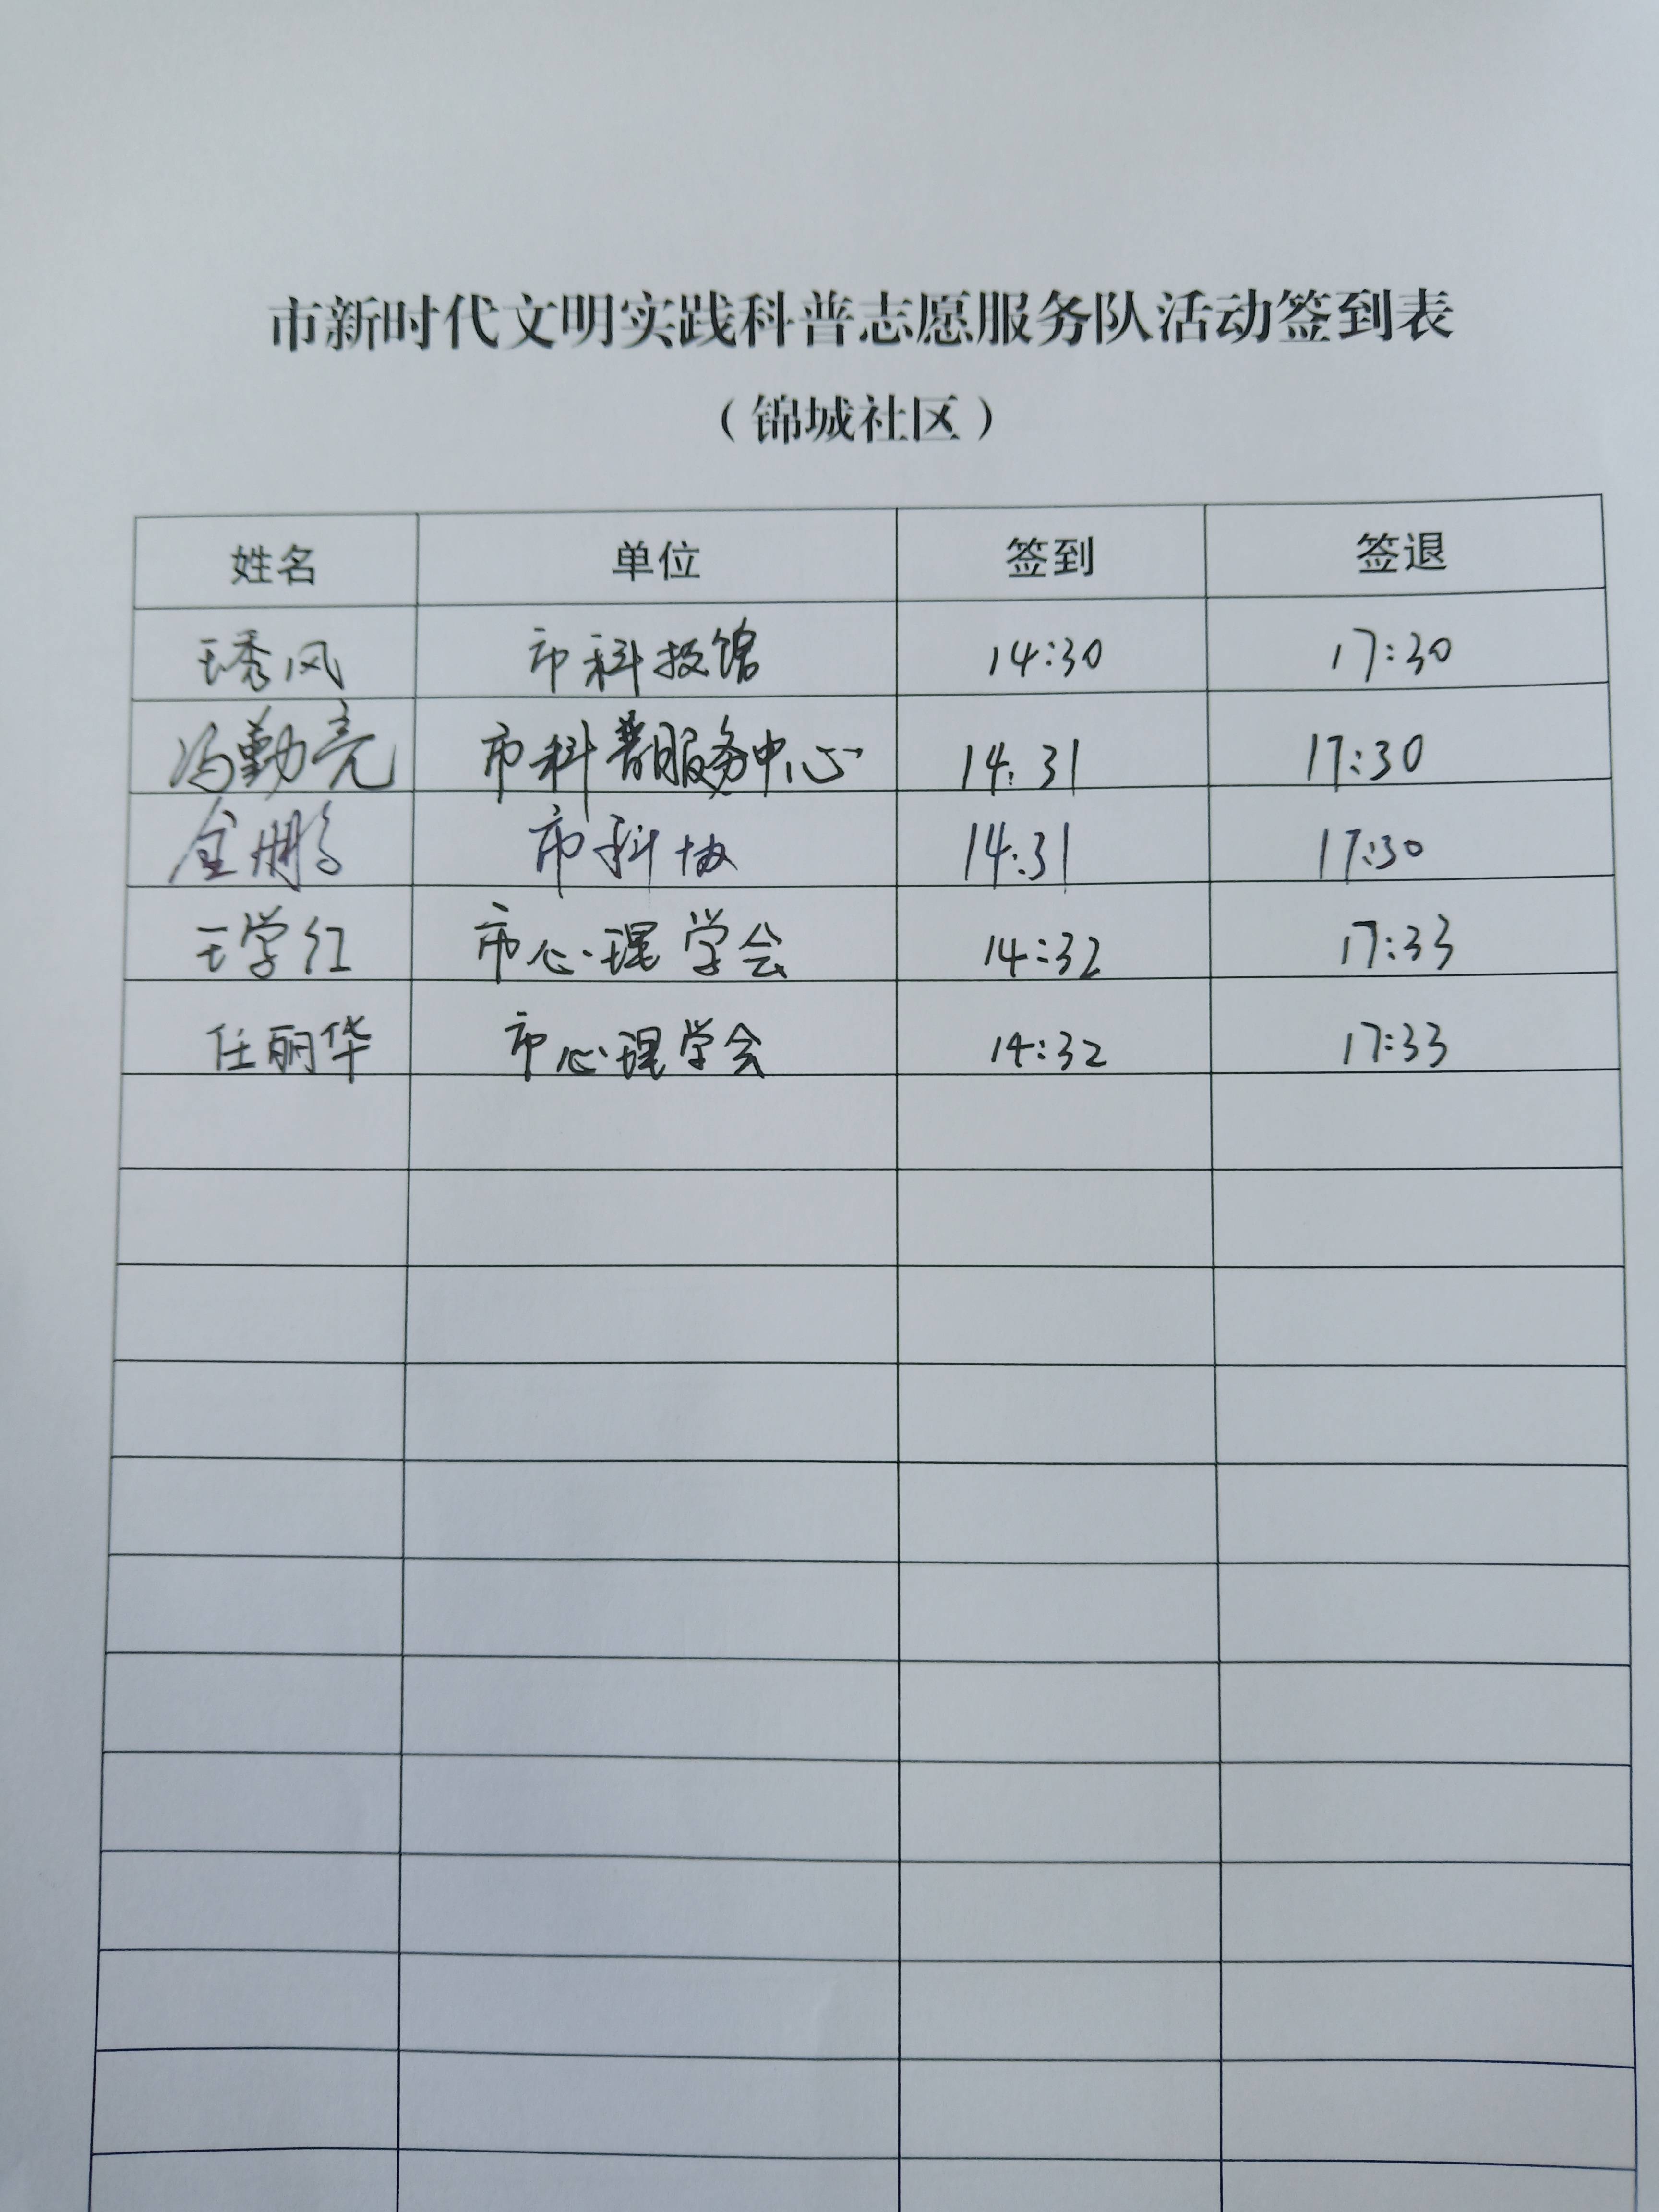 市新时代文明实践科普志愿服务队活动签到表
（锦城社区）
姓名 单位 签到 签退
王秀风 市科技馆 14:30 17:30
冯勤亮 市科普服务中心 14:31 17:30
金鹏 市科协 14:31 17:30
王学红 市心理学会 14:32 17:33
任丽华 市心理学会 14:32 17:33